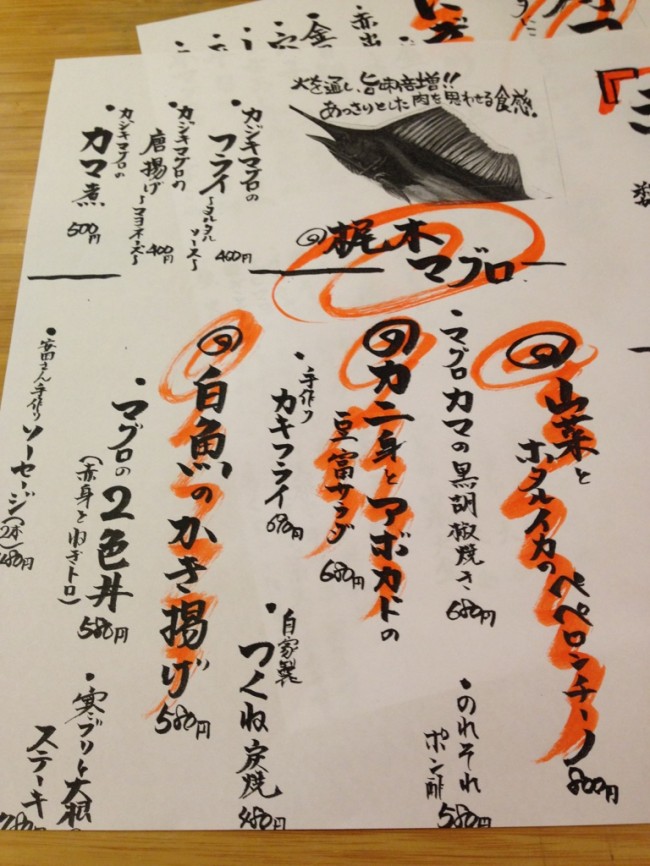 火を通し、旨味倍増!!
あっさりとした肉を思わせる食感。
梶木
マグロ
・カジキマグロの
フライ
～タルタル
ソース～
400円
・カジキマグロの
唐揚げ
～マヨネーズ～
400円
・カジキマグロの
カマ煮
500円
山菜と
ホタルイカの
ペペロンチーノ
800円
・マグロカマの黒胡椒焼き
680円
・のれそれ
ポン酢
580円
カニ身とアボカドの
豆富サラダ
680円
・手作り
カキフライ
690円
・自家製
つくね炭焼
480円
白魚のかき揚げ
580円
・マグロの2色丼
(赤身とねぎトロ)
580円
・寒ブリと大根の
ステーキ
・安田さん手作り
ソーセージ(2本)
480円
赤出
金